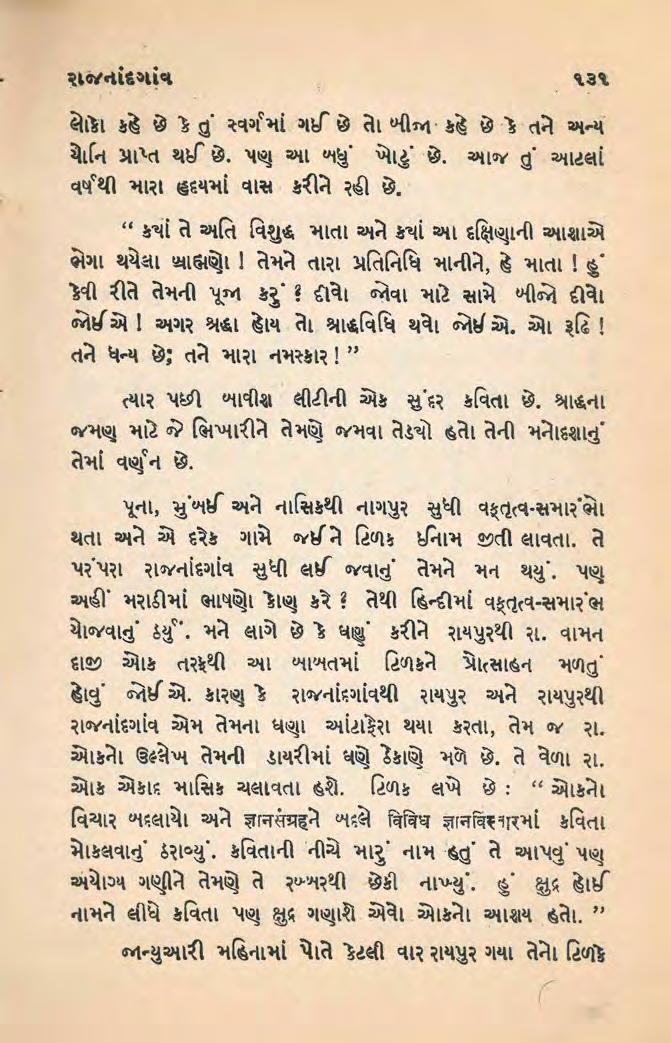 રાજનાંદગાંવ ૧૩૧
લોકો કહે છે કે તું સ્વર્ગમાં ગઈ છે તો બીજા કહે છે કે તને અન્ય
યોનિ પ્રાપ્ત થઈ છે. પણ આ બધું ખોટું છે. આજ તું આટલાં
વર્ષથી મારા હૃદયમાં વાસ કરીને રહી છે.
“ ક્યાં તે અતિ વિશુદ્ધ માતા અને ક્યાં આ દક્ષિણાની આશાએ
ભેગા થયેલા બ્રાહ્મણો ! તેમને તારા પ્રતિનિધિ માનીને, હે માતા ! હું
કેવી રીતે તેમની પૂજા કરું ? દીવો જોવા માટે સામે બીજો દીવો
જોઈએ ! અગર શ્રદ્ધા હોય તો શ્રાદ્ધવિધિ થવો જોઈએ. ઓ રૂઢિ !
તને ધન્ય છે; તને મારા નમસ્કાર ! ”
ત્યાર પછી બાવીશ લીટીની એક સુંદર કવિતા છે. શ્રાદ્ધના
જમણ માટે જે ભિખારીને તેમણે જમવા તેડ્યો હતો તેની મનોદશાનું
તેમાં વર્ણન છે.
પૂના, મુંબઈ અને નાસિકથી નાગપુર સુધી વક્તૃત્વ-સમારંભો
થતા અને એ દરેક ગામે જઈને ટિળક ઈનામ જીતી લાવતા. તે
પરંપરા રાજનાંદગાંવ સુધી લઈ જવાનું તેમને મન થયું. પણ
અહીં મરાઠીમાં ભાષણો કોણ કરે ? તેથી હિન્દીમાં વક્તૃત્વ-સમારંભ
યોજવાનું ઠર્યું. મને લાગે છે કે ઘણું કરીને રાયપુરથી રા. વામન
દાજી ઓક તરફથી આ બાબતમાં ટિળકને પ્રોત્સાહન મળતું
હોવું જોઈએ. કારણ કે રાજનાંદગાંવથી રાયપુર અને રાયપુરથી
રાજનાંદગાંવ એમ તેમના ઘણા આંટાફેરા થયા કરતા, તેમ જ રા.
ઓકનો ઉલ્લેખ તેમની ડાયરીમાં ઘણે ઠેકાણે મળે છે. તે વેળા રા.
ઓક એકાદ માસિક ચલાવતા હશે. ટિળક લખે છે : “ ઓકનો
વિચાર બદલાયો અને ज्ञानसंग्रहને બદલે विविध ज्ञानविस्तारમાં કવિતા
મોકલવાનું ઠરાવ્યું. કવિતાની નીચે મારું નામ હતું તે આપવું પણ
અયોગ્ય ગણીને તેમણે તે રબ્બરથી છેકી નાખ્યું. હું ક્ષુદ્ર હોઈ
નામને લીધે કવિતા પણ ક્ષુદ્ર ગણાશે એવો ઓકનો આશય હતો. ”
જાન્યુઆરી મહિનામાં પોતે કેટલી વાર રાયપુર ગયા તેનો ટિળકે